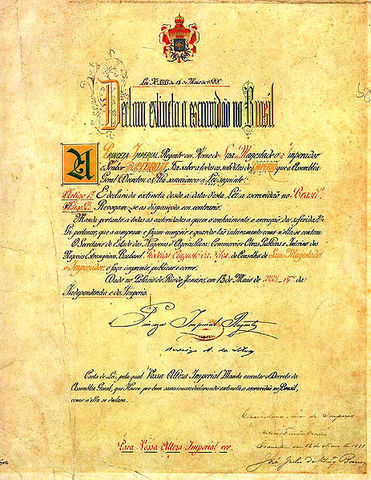 Lei N. 3353 de 13 de Maio de 1888.
Declara extincta a escravidão no Brasil.
A Princeza Imperial Regente em Nome de Sua Magestade o Imperador
o Senhor D. Pedro II, Faz saber a todos os subditos do Imperio que a Assembléa
Geral Decretou e Ella sanccionou a Lei seguinte:
Artigo 1º É declarada extincta desde a data desta Lei a escravidão no Brasil.
Artigo 2º Revogam-se as disposições em contrario.
Manda portanto a todas as autoridades a quem o conhecimento e execução da referida
Lei pertencer, que a cumpram e façam cumprir e guardar tão inteiramente como nella se contem.
O Secretario de Estado dos Negocios d'Agricultura, Commercio e Obras Publicas e Interino dos
Negocios Estrangeiros, Bacharel Rodrigo Augusto da Silva, do Conselho de Sua Magestade
o Imperador, o faça imprimir, publicar e correr.
Dado no Palacio do Rio de Janeiro, em 13 de Maio de 1888, 67º da
Independencia e do Imperio.
Princeza Imperial Regente
Rodrigo A. da Silva
Carta de Lei, pela qual Vossa Alteza Imperial Manda executar o Decreto da
Assembléa Geral, que Houve por bem sanccionar declarando extincta a escravidão no Brasil,
como nella se declara.
Para Vossa Alteza Imperial ver.